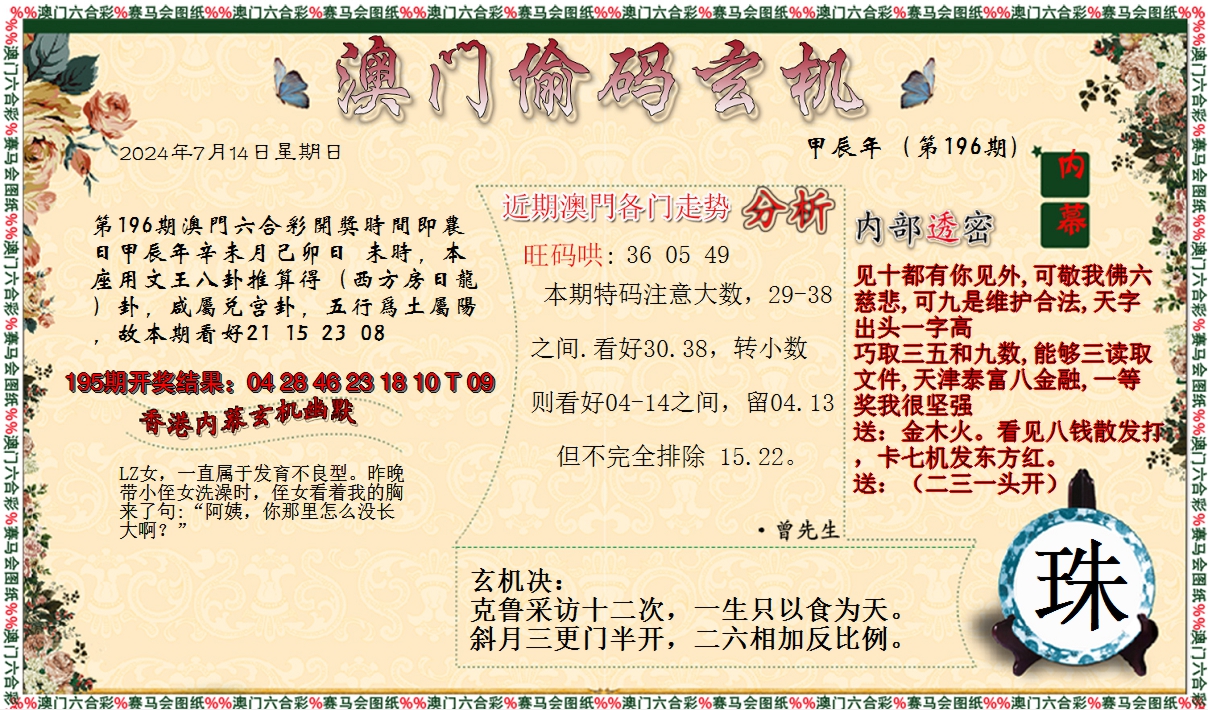 %%澳门六合彩%赛马会图纸%%澳门六合彩%赛马会图纸%%澳门六合彩%赛马会图纸%%澳门六合彩%赛马会图纸%%澳门六合彩%赛马会图纸%%澳门六合彩%赛马会图纸%%
澳门偷码玄机
2024年7月14日星期日
甲辰年 （第196期）
内
幕
第196期澳門六合彩開獎時間即農
日甲辰年辛未月己卯日 未時，本
座用文王八卦推算得（西方房日龍
）卦，咸屬兌宮卦，五行爲土屬陽
，故本期看好21 15 23 08
195期开奖结果：04 28 46 23 18 10 T 09
香港内幕玄机幽默
LZ女，一直属于发育不良型。昨晚
带小侄女洗澡时，侄女看着我的胸
来了句:“阿姨，你那里怎么没长
大啊？”
近期澳門各门走势 分析
旺码哄: 36 05 49
本期特码注意大数，29-38
之间.看好30.38，转小数
则看好04-14之间，留04.13
但不完全排除 15.22。
·曾先生
内部透密
见十都有你见外,可敬我佛六
慈悲,可九是维护合法,天字
出头一字高
巧取三五和九数,能够三读取
文件,天津泰富八金融,一等
奖我很坚强
送：金木火。看见八钱散发打
，卡七机发东方红。
送：（二三一头开）
玄机决：
克鲁采访十二次，一生只以食为天。
斜月三更门半开，二六相加反比例。
珠
%%澳门六合彩%赛马会图纸%%澳门六合彩%赛马会图纸%%澳门六合彩%赛马会图纸%%澳门六合彩%赛马会图纸%%澳门六合彩%赛马会图纸%%澳门六合彩%赛马会图纸%%